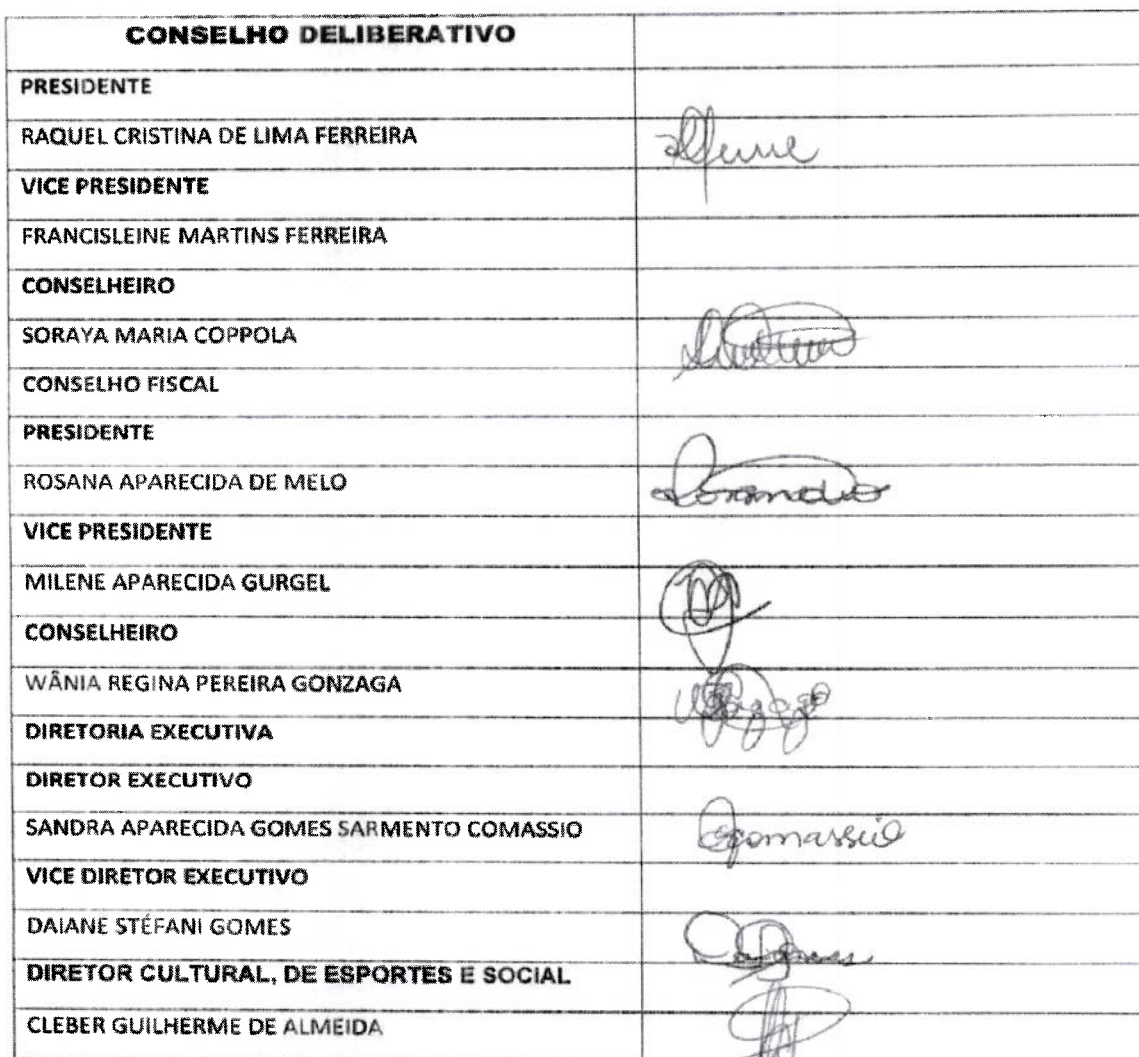 CONSELHO DELIBERATIVO
PRESIDENTE
RAQUEL CRISTINA DE LIMA FERREIRA
VICE PRESIDENTE
FRANCISLEINE MARTINS FERREIRA
CONSELHEIRO
SORAYA MARIA COPPOLA
CONSELHO FISCAL
PRESIDENTE
ROSANA APARECIDA DE MELO
VICE PRESIDENTE
MILENE APARECIDA GURGEL
CONSELHEIRO
WÂNIA REGINA PEREIRA GONZAGA
DIRETORIA EXECUTIVA
DIRETOR EXECUTIVO
SANDRA APARECIDA GOMES SARMENTO COMASSIO
VICE DIRETOR EXECUTIVO
DAIANE STÉFANI GOMES
DIRETOR CULTURAL, DE ESPORTES E SOCIAL
CLEBER GUILHERME DE ALMEIDA